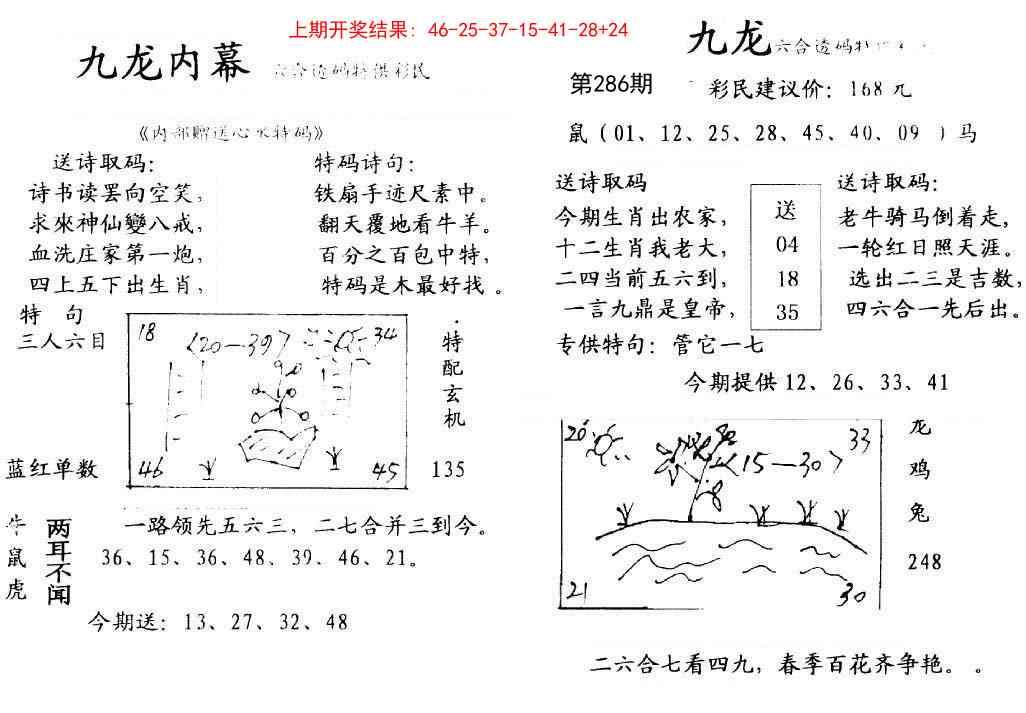 上期开奖结果：46-25-37-15-41-28+24
九龙内幕 六合透码特供彩民
《内部赠送心水特码》
送诗取码：
诗书读罢向空笑，
求來神仙變八戒，
血洗庄家第一炮，
四上五下出生肖，
特码诗句：
铁扇手迹尺素中。
翻天覆地看牛羊。
百分之百包中特，
特码是木最好找。
特句
三人六目
蓝红单数
18
34
〈20—39〉
46
45
特配玄机
135
牛
鼠
虎
两耳不闻
一路领先五六三，二七合并三到今。
36、15、36、48、39、46、21。
今期送：13、27、32、48
九龙 六合透码特
第286期
彩民建议价：168元
鼠（01、12、25、28、45、40、09）马
送诗取码
今期生肖出农家，
十二生肖我老大，
二四当前五六到，
一言九鼎是皇帝，
送
04
18
35
送诗取码：
老牛骑马倒着走，
一轮红日照天涯。
选出二三是吉数，
四六合一先后出。
专供特句：管它一七
今期提供12、26、33、41
20
33
〈15—30〉
21
30
龙
鸡
兔
248
二六合七看四九，春季百花齐争艳。。